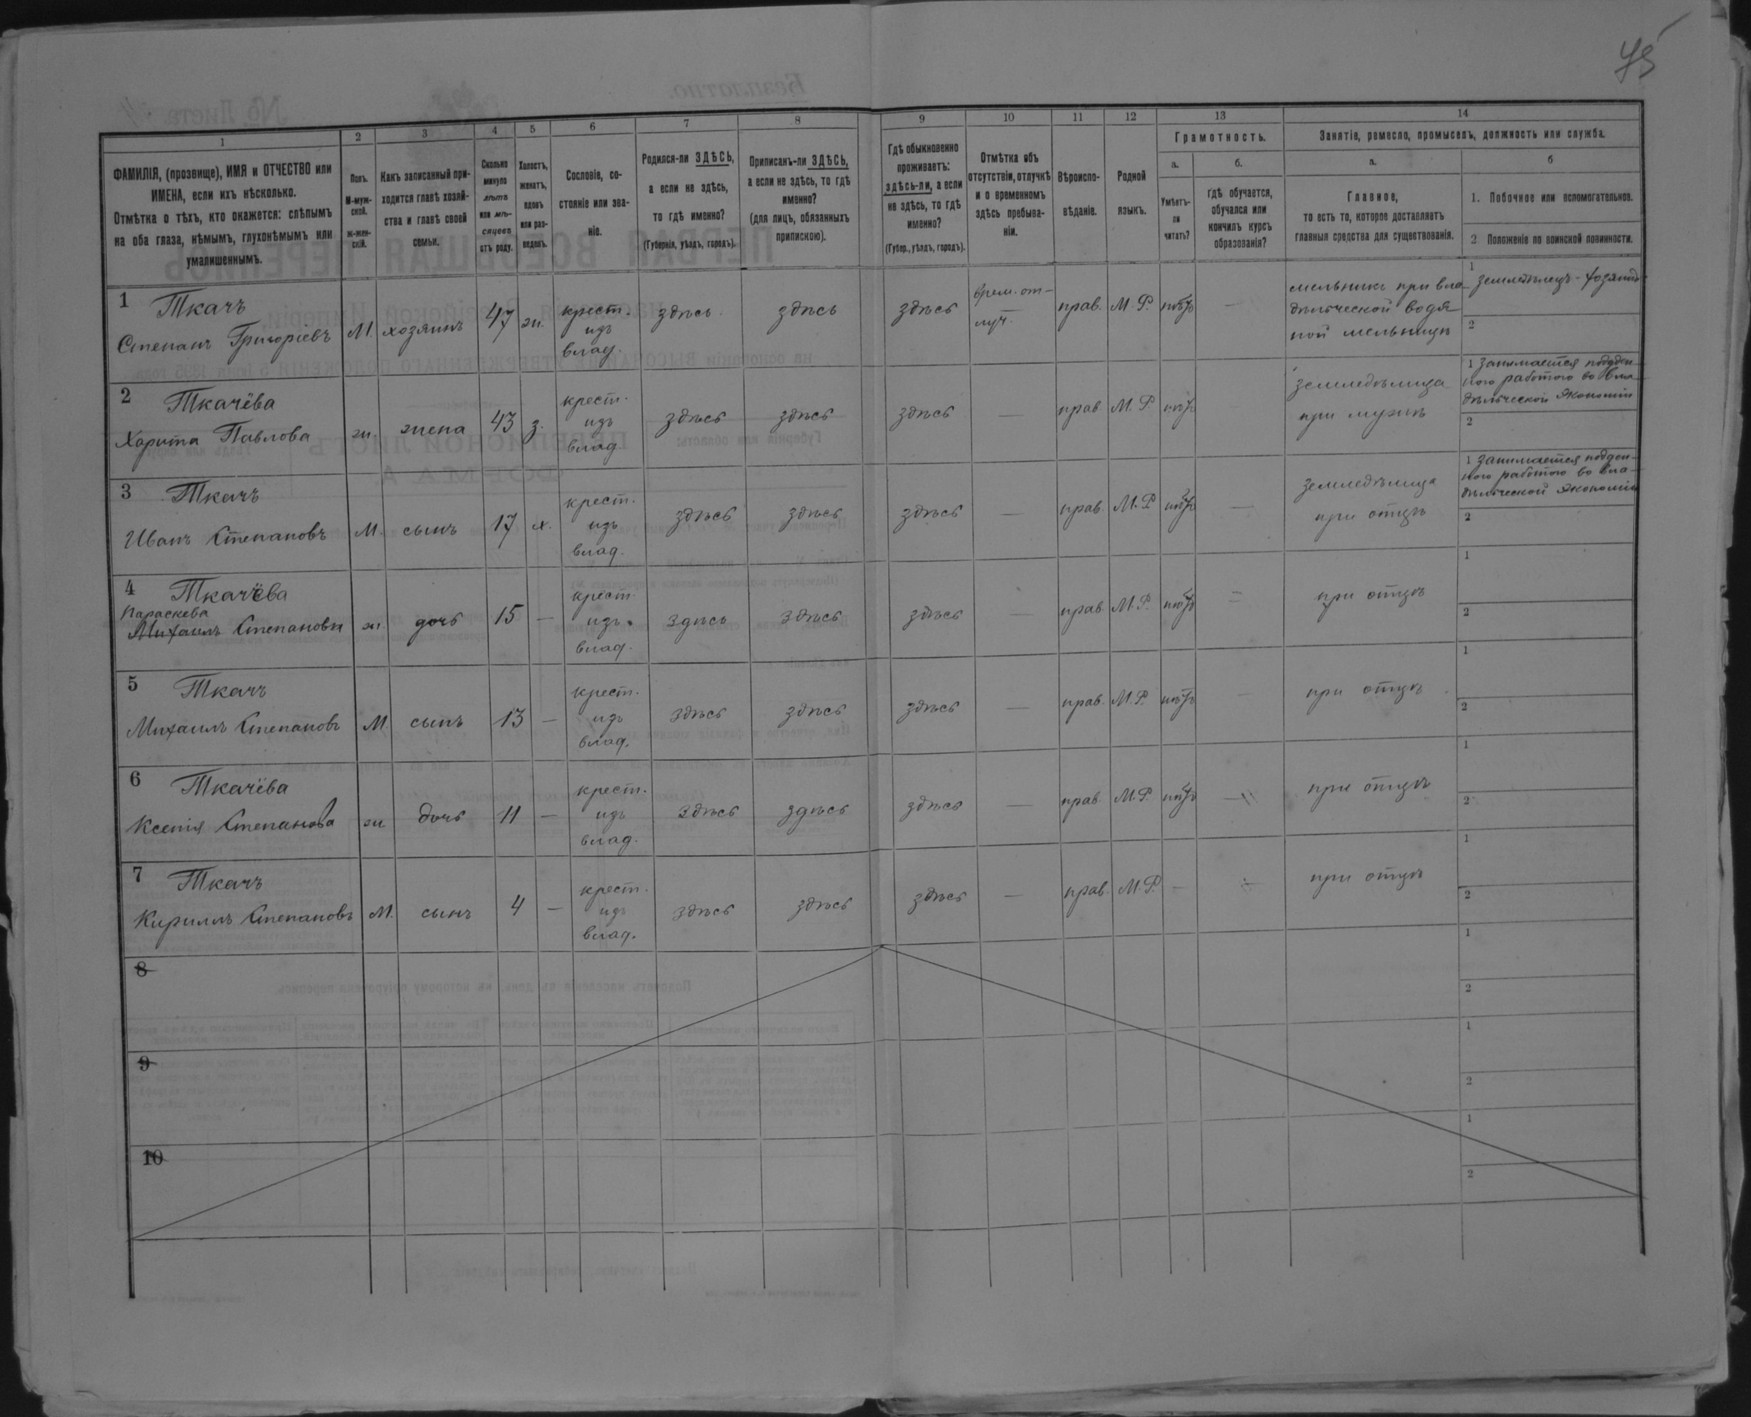 75
1 2 3 4 5 6 7 8 9 10 11 12 13 14
ФАМИЛІЯ, (прозвище), ИМЯ и ОТЧЕСТВО или ИМЕНА, если ихъ нѣсколько.
Отмѣтка о тѣхъ, кто окажется: слѣпымъ на оба глаза, нѣмымъ, глухонѣмымъ или умалишеннымъ.
Полъ. М-муж-ской. Ж-жен-скій.
Какъ записанный при-ходится главѣ хозяй-ства и главѣ своей семьи.
Сколько минуло лѣтъ или мѣ-сяцевъ отъ роду.
Холостъ, женатъ, вдовъ или раз-веденъ.
Сословіе, со-стояніе или зва-ніе.
Родился-ли ЗДѢСЬ, а если не здѣсь, то гдѣ именно? (Губернія, уѣздъ, городъ).
Приписанъ-ли ЗДѢСЬ, а если не здѣсь, то гдѣ именно? (для лицъ, обязанныхъ припискою).
Гдѣ обыкновенно проживаетъ: здѣсь-ли, а если не здѣсь, то гдѣ именно? (Губер., уѣздъ, городъ).
Отмѣтка объ отсутствіи, отлучкѣ и о временномъ здѣсь пребыва-ніи.
Вѣроиспо-вѣданіе.
Родной языкъ.
Грамотность.
а. Умѣетъ-ли читать?
б. Гдѣ обучается, обучался или кончилъ курсъ образованія?
Занятія, ремесло, промыселъ, должность или служба.
а. Главное, то есть то, которое доставляетъ главныя средства для существованія.
б
1. Побочное или вспомогательное.
2 Положеніе по воинской повинности.
1 Ткачъ Степанъ Григоріевъ М. хозяинъ 47 ж. крест. изъ влад. здѣсь здѣсь здѣсь врем. от-луч. прав. М. Р. нѣтъ — мельникъ при вла-дѣльческой водя-ной мельницѣ 1 земледѣлецъ - хозяинъ 2
2 Ткачёва Харита Павлова ж. жена 43 з. крест. изъ влад. здѣсь здѣсь здѣсь — прав. М. Р. нѣтъ земледѣлица при мужѣ 1 занимается поден-ною работою во вла-дѣльческой экономіи 2
3 Ткачъ Иванъ Степановъ М. сынъ 17 х. крест. изъ влад. здѣсь здѣсь здѣсь — прав. М. Р. нѣтъ — земледѣлица при отцѣ 1 занимается поден-ною работою во вла-дѣльческой экономіи 2
4 Ткачёва Параскева Михаилъ Степановы ж. дочь 15 — крест. изъ влад. здѣсь здѣсь здѣсь — прав. М. Р. нѣтъ = при отцѣ 1 2
5 Ткачъ Михаилъ Степановъ М сынъ 13 — крест. изъ влад. здѣсь здѣсь здѣсь — прав. М. Р. нѣтъ — при отцѣ 1 2
6 Ткачёва Ксенія Степанова ж дочь 11 — крест. изъ влад. здѣсь здѣсь здѣсь — прав. М. Р. нѣтъ — при отцѣ 1 2
7 Ткачъ Кириллъ Степановъ М. сынъ 4 — крест. изъ влад. здѣсь здѣсь здѣсь — прав. М. Р. — при отцѣ 1 2
8 1 2
9 1 2
10 1 2